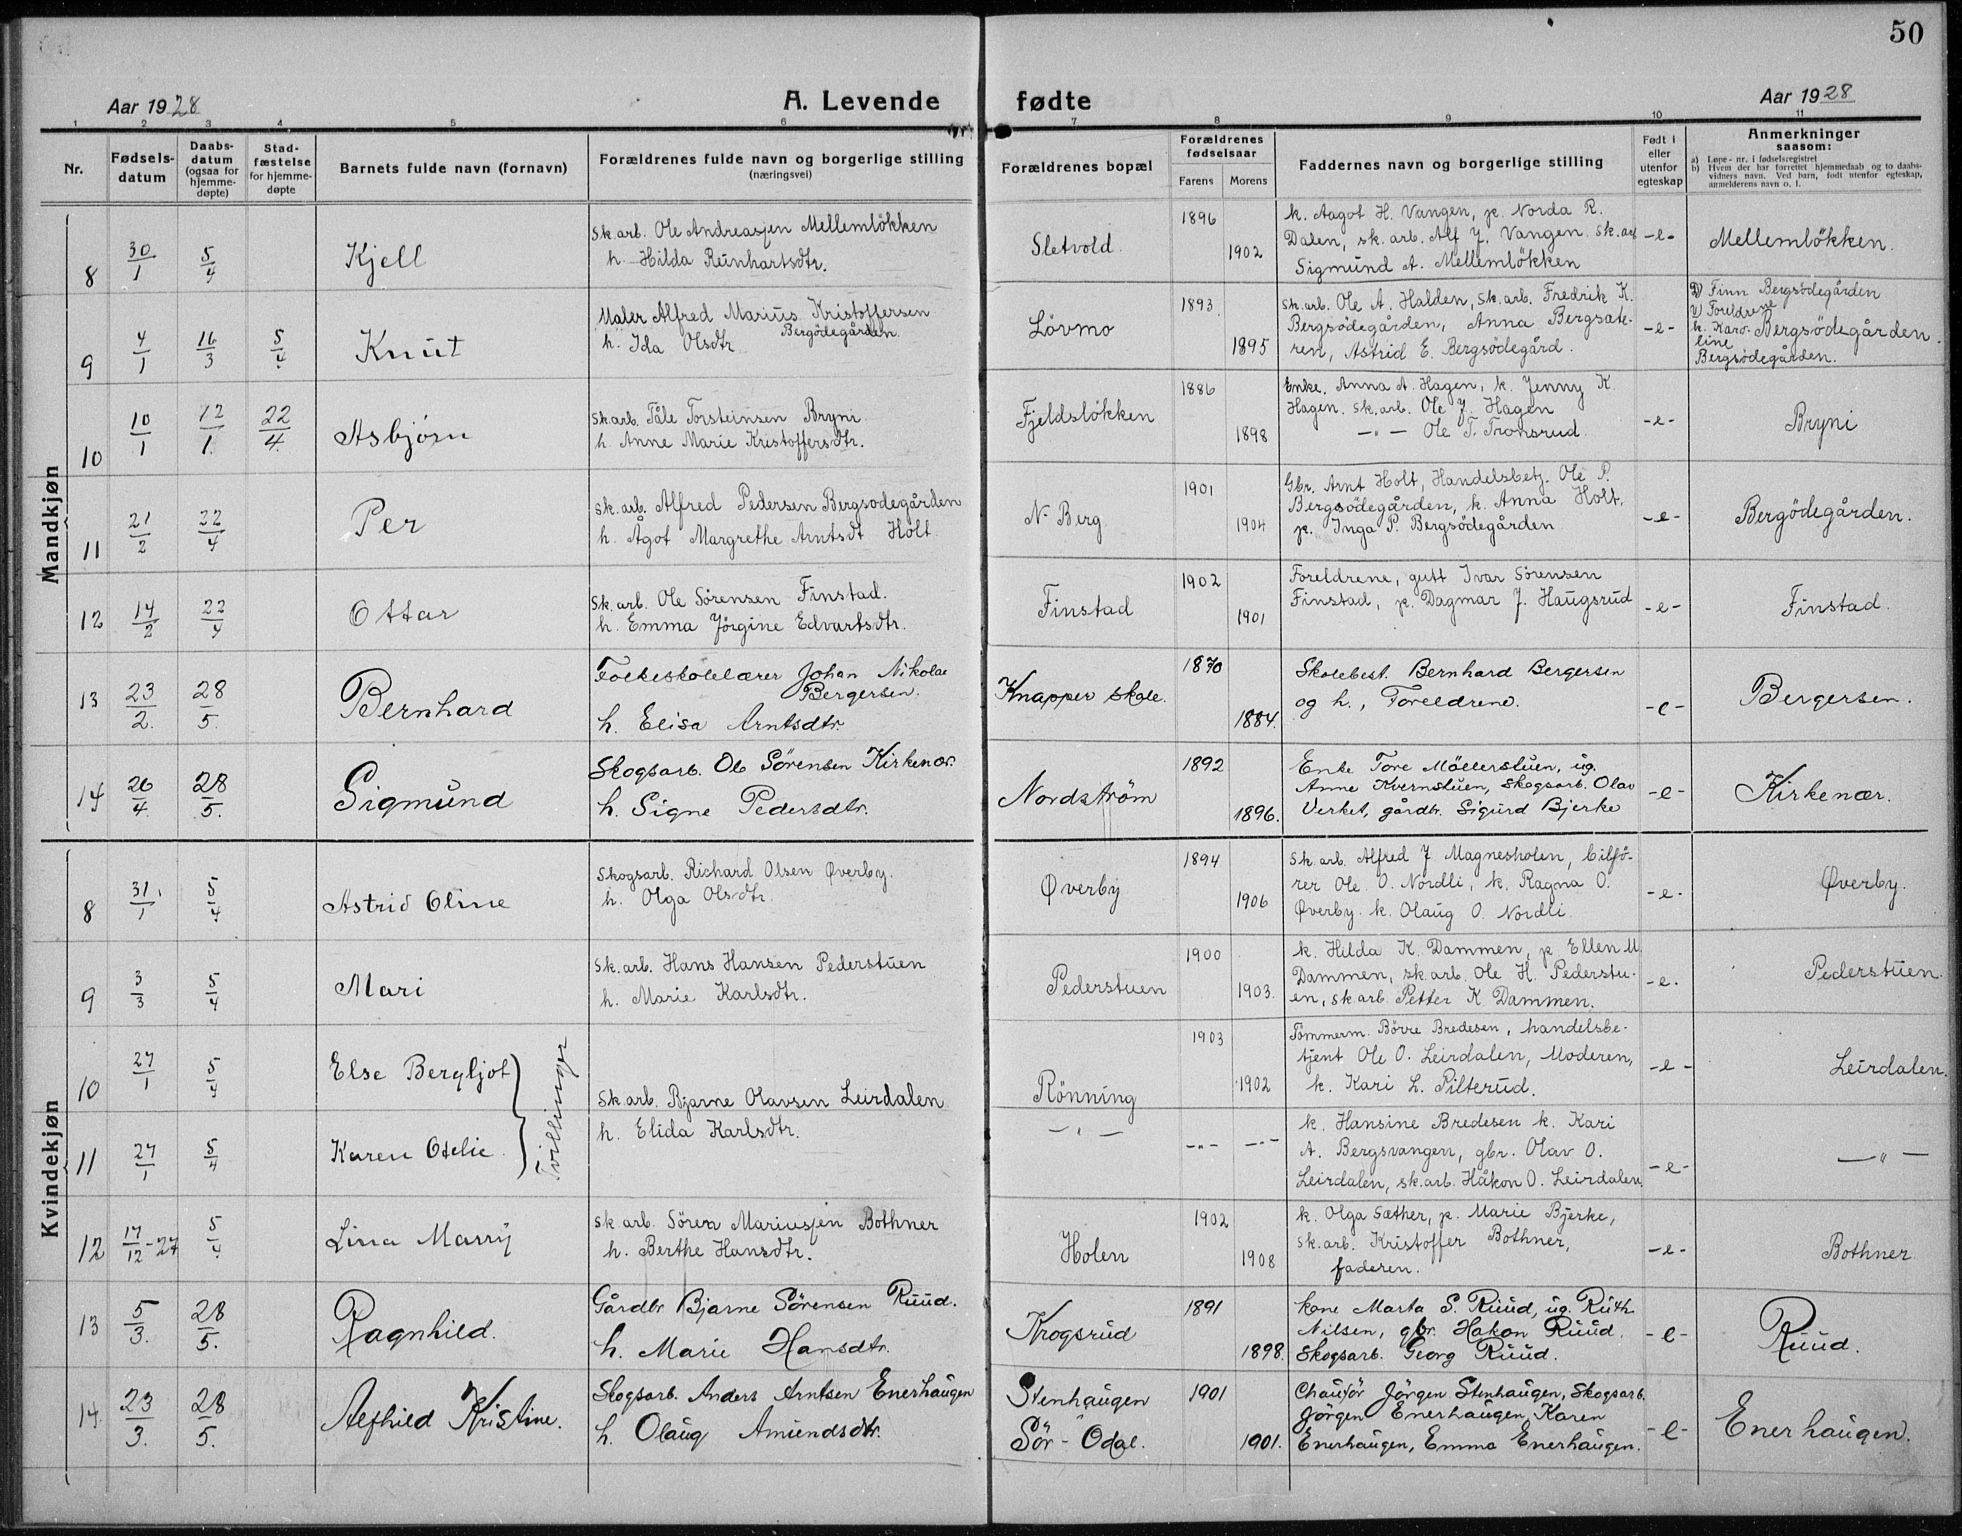 50
Aar 1928
A. Levende fødte
Aar 1928
1 2 3 4 5 6 7 8 9 10 11
Nr.
Fødsels-
datum
Daabs-
datum
(ogsaa for
hjemme-
døpte)
Stad-
fæstelse
for hjemme-
døpte
Barnets fulde navn (fornavn)
Forældrenes fulde navn og borgerlige stilling
(næringsvei)
Forældrenes bopæl
Forældrenes
fødselsaar
Farens Morens
Faddernes navn og borgerlige stilling
Født i
eller
utenfor
egteskap
Anmerkninger
saasom:
a) Løpe-nr. i fødselsregistret
b) Hvem der har forrettet hjemmedaab og to daabs-
vidners navn. Ved barn, født utenfor egteskap,
anmelderens navn o. l.
Mandkjøn
8 30/1 5/4 Kjell
Sk.arb. Ole Andreasjen Mellemlökken
h. Hilda Reinhartsdtr.
Sletvold 1896 1902
k. Aagot H. Vangen, p. Norda R.
Dalen, sk. arb. Alf J. Vangen. sk. arb
Sigmund A. Mellemlökken
-e- Mellemlökken.
9 4/1 16/3 5/4 Knut
Maler Alfred Marius Kristoffersen
Bergödegården
h. Ida Olsdtr
Lövmo 1893 1895
sk.arb. Ole A. Halden, sk.arb. Fredrik K.
Bergsödegården, Anna Bergsæte-
ren, Astrid E. Bergsödegård.
-e-
Finn Bergsödegården
Foreldrene
h. Karo-
line
Bergsödegården.
Bergsödegården.
10 10/1 12/1. 22/4. Asbjørn
Sk.arb. Påle Torsteinsen Bryni
h. Anne Marie Kristoffersdtr.
Fjeldslökken 1886 1898
Enke. Anna A. Hagen, k. Jenny K.
Hagen. Sk.arb. Ole J. Hagen
—"— Ole T. Tronsrud.
-e- Bryni
11 21/2 22/4 Per
sk.arb. Alfred Pedersen Bergsødegården
h. Ågot Margrethe Arntsdt Holt
N. Berg. 1901 1904
Gbr. Arnt Holt, Handelsbetj. Ole P.
Bergsödegården, k. Anna Holt.
p. Inga P. Bergsödegården
-e- Bergödegården.
12 14/2 22/4 Ottar
Sk.arb. Ole Sørensen Finstad.
h. Emma Jörgine Edvartsdtr.
Finstad 1902 1901
Foreldrene, gutt Ivar Sörensen
Finstad, p. Dagmar J. Haugsrud
-e- Finstad.
13 23/2. 28/5. Bernhard
Folkeskolelærer Johan Nikolai
Bergersen.
h. Elisa Arntsdtr.
Knapper skole. 1870 1884.
Skolebest. Bernhard Bergersen
og h., Foreldrene.
-e- Bergersen.
14 26/4. 28/5. Sigmund
Skogsarb. Ole Sörensen Kirkenær.
h. Signe Pedersdtr.
Nordström 1892 1896.
Enke Tore Möllerstuen, ug.
Anne Kvernstuen, Skogsarb. Olav
Verket, gårdbr. Sigurd Bjerke
-e- Kirkenær.
Kvindekjøn
8 31/1 5/4 Astrid Oline
Skogsarb. Richard Olsen Øverby.
h. Olga Olsdtr.
Øverby 1894 1906
Sk.arb. Alfred J Magnesholen, bilfö-
rer Ole O. Nordli, k. Ragna O.
Øverby. k. Olaug O. Nordli
-e- Øverby.
9 3/3 5/4 Mari
Sk.arb. Hans Hansen Pederstuen
h. Marie Karlsdtr.
Pederstuen 1900 1903.
k. Hilda K. Dammen, p Ellen M.
Dammen, sk.arb. Ole H. Pederstu-
en, sk.arb. Petter K. Dammen.
-e. Pederstuen.
10 27/1 5/4 Else Bergljot
Tvillinger
Sk.arb. Bjarne Olavsen Leirdalen
h. Elida Karlsdtr.
Rönning 1903 1902
Tömmerm. Börre Bredesen, handelsbe-
tjent Ole O. Leirdalen, Moderen,
k. Kari L. Pilterud.
-e- Leirdalen.
11 27/1 5/4 Karen Otelie
—"— —"— —"—
k. Hansine Bredesen k. Kari
A. Bergsvangen, gbr. Olav O.
Leirdalen, sk.arb. Håkon O. Leirdalen
-e- —"—
12 17/12-27 5/4 Lina Marry
sk arb. Sören Mariusjen Bothner
h. Berthe Hansdtr.
Holen 1902 1908
k. Olga Sæther, p. Marie Bjerke,
sk.arb. Kristoffer Bothner,
faderen.
-e- Bothner
13 5/3. 28/5. Ragnhild.
Gårdbr Bjarne Sörensen Ruud.
h. Marie Hansdtr.
Krogsrud 1891 1898.
Kone Marta S. Ruud, ug. Ruth
Nilsen, gbr. Håkon Ruud.
Skogsarb. Georg Ruud.
-e- Ruud.
14. 23/3. 28/5. Alfhild Kristine.
Skogsarb. Anders Arntsen Enerhaugen
h. Olaug Amundsdtr.
Stenhaugen
Sör-Odal. 1901 1901.
Chauför Jörgen Stenhaugen, Skogsarb.
Jörgen Enerhaugen, Karen
Enerhaugen, Emma Enerhaugen.
-e- Enerhaugen.